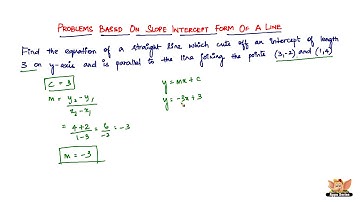 PROBLEMS BASED ON SLOPE INTERCEPT FORM OF A LINE
Find the equation of a straight line which cuts off an intercept of length
3 on y-axis and is parallel to the line joining the points (3,-2) and (1,4)
C = 3
m = y₂ - y₁ / x₂ - x₁
= 4+2 / 1-3 = 6 / -2 = -3
m = -3
y = mx + c
y = -3x + 3